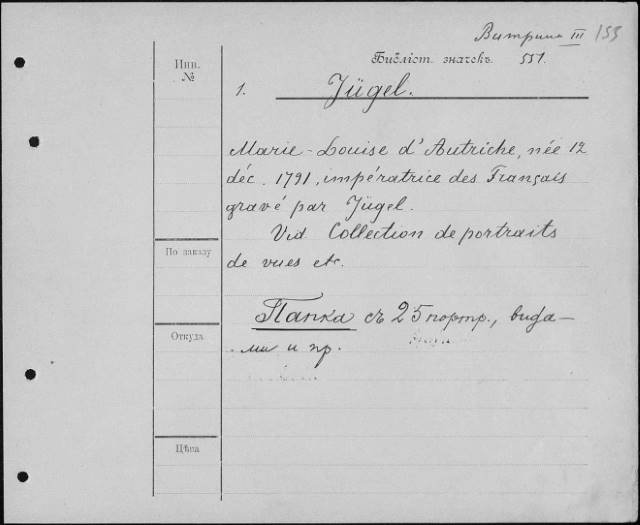 Витрина III 153
Библіот. значекъ. 551.
Инв.
№
1. Jügel.
Marie-Louise d'Autriche, née 12
déc. 1791, impératrice des Français
gravé par Jügel.
Vid Collection de portraits
de vues etc.
По заказу
Папка съ 25 портр., вида-
ми и пр.
Откуда
Цѣна